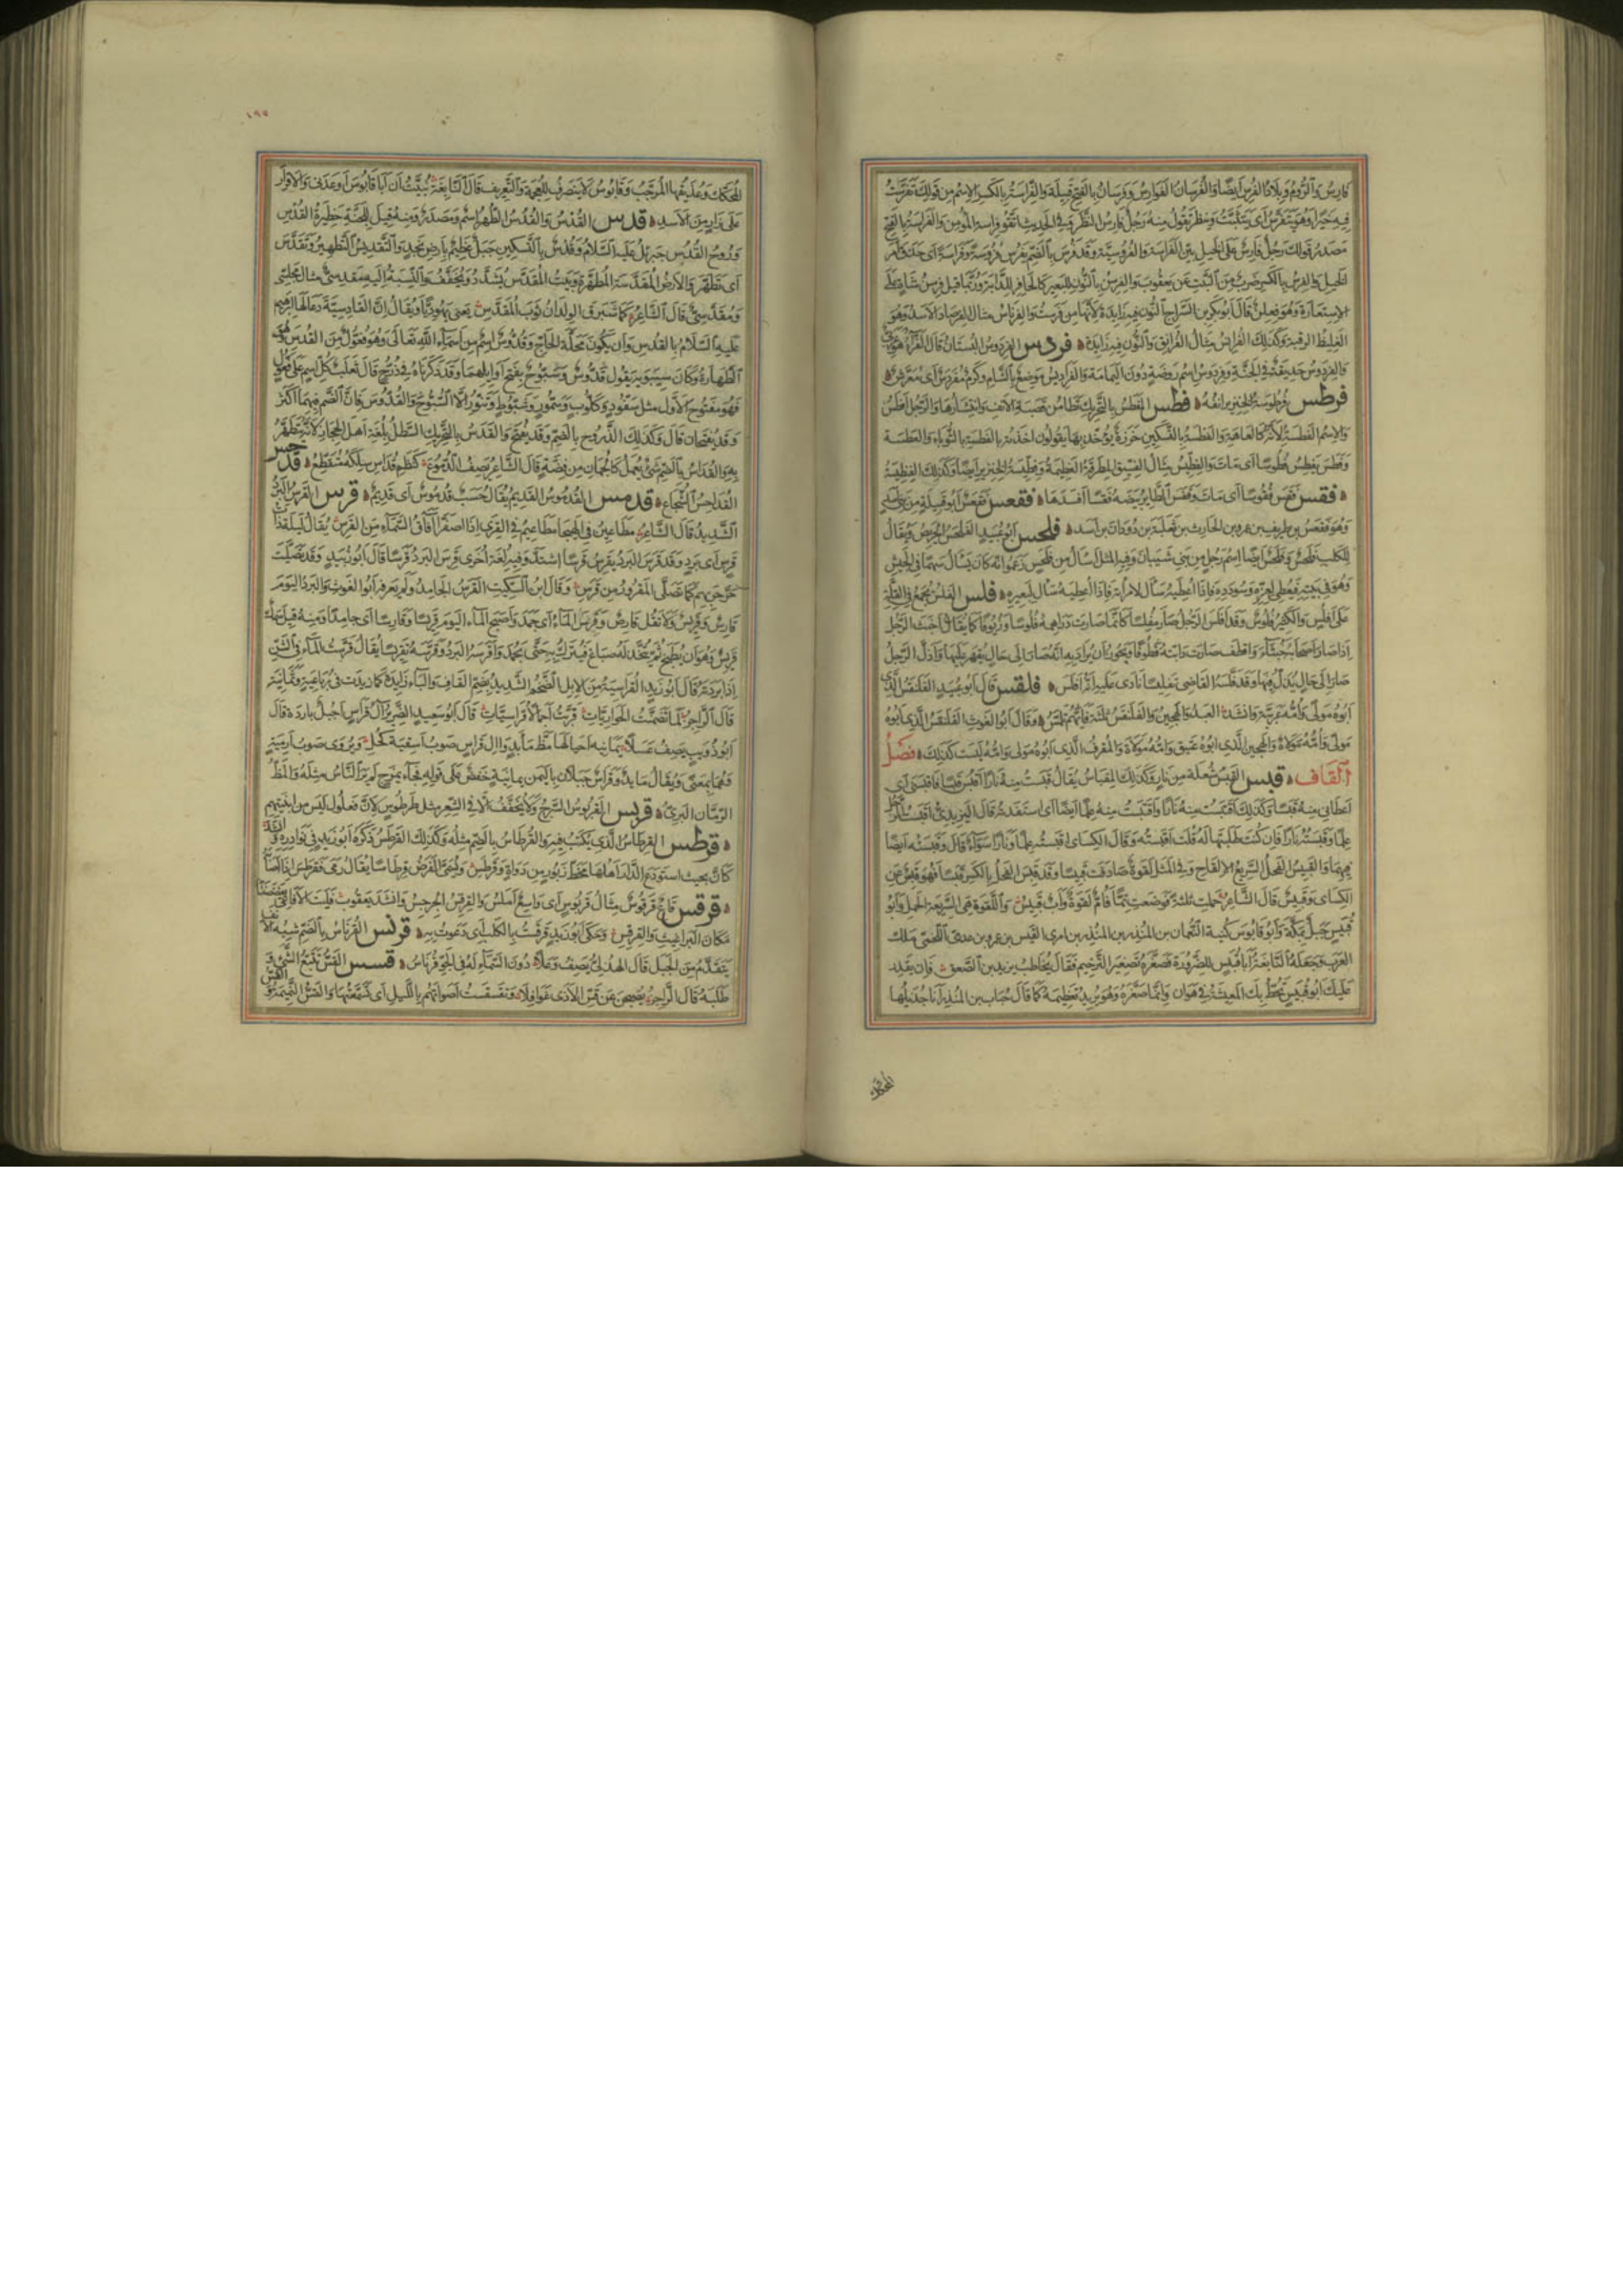 فارس والروم وبلاد الفرس ايضا والفرسان الفوارس وفرسان بالفتح قبيلة والفراسة بالكسر الاسم من قولك تفرست
فيه خيرا وهو يتفرس اى يتثبت وينظر تقول منه رجل فارس النظر وفي الحديث اتقوا فراسة المؤمن والفراسة بالفتح
مصدر قولك رجل فارس على الخيل بين الفراسة والفروسية وقد فرس بالضم يفرس فروسة وفراسة اى حذق امر
الخيل والفرس بالكسر ضرب من النبت عن يعقوب والفرسن بالنون للبعير كالحافر للدابة وربما قيل فرسن شاة على
الاستعارة وهو فعلن قال ابو بكر بن السراج النون فيه زايدة لانها من فرست والفرناس مثال الفرصاد الاسد وهو
الغليظ الرقبة وكذلك الفرانس مثال الفرانق والنون فيه زايدة ه فردس الفردوس البستان قال الفراء هو عربى
والفردوس حديقة في الجنة وفردوس اسم روضة دون اليمامة والفراديس موضع بالشام وكرم مفردس اى معرش ه
فرطس فرطوسة الخنزير انفه ه فطس الفطس بالتحريك تطامن قصبة الانف وانتشارها والرجل افطس
والاسم الفطسة لانه كالعاهة والفطسة بالتسكين خرزة يؤخذ بها يقولون اخذته بالفطسة بالثوباء والعطسة
وفطس يفطس فطوسا اى مات والفطيس مثال الفسيق المطرقة العظيمة وفطيسة الخنزير ايضا وكذلك الفنطيسة
ه فقس فقس فقوسا اى مات وفقس الطاير بيضه فقسا افسدها ه فقعس فقعس ابو قبيلة من بنى اسد
وهو فقعس بن طريف بن عمرو بن الحارث بن ثعلبة بن دودان بن اسد ه فلحس ابو عبيد الفلحس الحريص ويقال
للكلب فلحس وفلحس ايضا اسم رجل من بنى شيبان وفيه المثل اسأل من فلحس زعموا انه كان يسأل سهما في الجيش
وهو في بيته فيعطى لعزه وسودده فاذا اعطيه سأل لامراته فاذا اعطيه سأل لبعيره ه فلس الفلس يجمع في القلة
على افلس والكثير فلوس وقد افلس الرجل صار مفلسا كانما صارت دراهمه فلوسا وزيوفا كما يقال اخبث الرجل
اذا صار اصحابه خبثاء واقطف صارت دابته قطوفا ويجوز ان يراد به انه صار الى حال يقهر عليها واذل الرجل
صار الى حال يذل فيها وقد فلسه القاضى تفليسا نادى عليه انه افلس ه فلقس قال ابو عبيد الفلنقس الذى
ابوه مولى وامه عربية وانشد العبد والهجين والفلنقس ثلثة فايهم تلمس ه وقال ابو الغوث الفلنقس الذى ابوه
مولى وامه مولاة والهجين الذى ابوه عتيق وامه مولاة والمقرف الذى ابوه مولى وامه ليست كذلك ه فصل
القاف ه قبس القبس شعلة من نار وكذلك المقباس يقال قبست منه نارا اقبس قبسا فاقبسنى اى
اعطانى منه قبسا وكذلك اقتبست منه نارا واقتبست منه علما ايضا اى استفدته قال اليزيدى اقبست الرجل
علما وقبسته نارا فان كنت طلبتها له قلت اقبسته وقال الكسائ اقبسته علما ونارا سواء قال وقبسته ايضا
فيهما والقبيس الفحل السريع الالقاح وفي المثل لقوة صادفت قبيسا وقد قبس الفحل بالكسر قبسا فهو قبس عن
الكسائ وقبيس قال الشاعر حملت ثلثة فوضعت تما فام لقوة واب قبيس واللقوة هى السريعة الحمل وابو
قبيس جبل بمكة وابو قابوس كنية النعمان بن المنذر بن المنذر بن امرى القيس بن عمرو بن عدى اللخمى ملك
العرب وجعله النابغة ابا قبيس للضرورة فصغره تصغير الترخيم فقال يخاطب يزيد بن الصعق فان يقدر
عليك ابو قبيس تحط بك المعيشة في هوان وانما صغره وهو يريد تعظيمه كما قال حباب بن المنذر انا جذيلها
المحكك
١٩٥
المحكك وعذيقها المرجب وقابوس لا ينصرف للعجمة والتعريف قال النابغة نبئت ان ابا قابوس اوعدنى ولا قرار
على زار من الاسد ه قدس القدس والقدس الطهر اسم ومصدر ومنه قيل للجنة حظيرة القدس
وروح القدس جبريل عليه السلام وقدس بالتسكين جبل عظيم بارض نجد والتقديس التطهير وتقدس
اى تطهر والارض المقدسة المطهرة وبيت المقدس يشدد ويخفف والنسبة اليه مقدسى مثال مجلسى
ومقدسى قال الشاعر كما شبرق الولدان ثوب المقدس يعنى يهوديا ويقال ان القادسية دعا لها ابراهيم
عليه السلام بالقدس وان يكون محلة الحاج وقدوس اسم من اسماء الله تعالى وهو فعول من القدس وهو
الطهارة وكان سيبويه يقول قدوس وسبوح بفتح اوايلهما وقد ذكرناه في ذرح قال ثعلب كل اسم على فعول
فهو مفتوح الاول مثل سفود وكلوب وسمور وشبوط وتنور الا السبوح والقدوس فان الضم فيهما اكثر
وقد يفتحان قال وكذلك الذروح بالضم وقد يفتح والقدس بالتحريك السطل بلغة اهل الحجاز لانه يتطهر
به والقداس بالضم شئ يعمل كالجمان من فضة قال الشاعر يصف الدموع كنظم قداس سلكه متقطع ه قدحس
القداحس الشجاع ه قدمس القدموس القديم يقال حسب قدموس اى قديم ه قرس القرس البرد
الشديد قال الشاعر مطاعين في الهيجا مطاعيم في القرى اذا اصفر آفاق السماء من القرس يقال ليلة ذات
قرس اى برد وقد قرس البرد يقرس قرسا اشتد وفيه لغة اخرى قرس البرد قرسا قال ابو زبيد وقد تصليت
حر حربهم كما تصلى المقرور من قرس وقال ابن السكيت القرس الجامد ولم يعرفه ابو الغوث والبرد اليوم
قارس وقريس ولا تقل قارص وقرس الماء اى جمد واصبح الماء اليوم قريسا وقارسا اى جامدا ومنه قيل سمك
قريس وهو ان يطبخ ثم يتخذ له صباغ فيترك فيه حتى يجمد واقرسه البرد وقرسه تقريسا يقال قرست الماء في الشن
اذا بردته قال ابو زيد القراسية من الابل الضخم الشديد بضم القاف والياء زايدة كما زيدت في رباعية وثمانية
قال الراجز لما تضمنت الحواريات قربت اجمالا قراسيات قال ابو سعيد الضرير آل قراس اجبل باردة قال
ابو ذويب يصف عسلا يمانية احيا لها مظ مأبد وآل قراس صوب اسقية كحل ويروى صوب ارمية
وهما بمعنى ويقال مايد وقراس جبلان باليمن يمانية خفض على قوله فجاء بمزج لم ير الناس مثله والمظ
الرمان البرى ه قربس القربوس السرج ولا يخفف الا في الشعر مثل طرطوس لان فعلول ليس من ابنيتهم
ه قرطس القرطاس الذى يكتب فيه والقرطاس بالضم مثله وكذلك القرطس ذكره ابو زيد في نوادره وانشد
كان بحيث استودع الدار اهلها مخط زبور من دواة وقرطس ويسمى الغرض قرطاسا يقال رمى فقرطس اذا اصابه
ه قرقس قاع قرقوس مثال قربوس اى واسع املس والقرقس الجرجس وانشد يعقوب فليت الافاعى يعضضننا
مكان البراغيث والقرقس وحكى ابو زيد قرقست بالكلب اى دعوت به ه قرنس القرناس بالضم شبيه الانف
يتقدم من الجبل قال الهذلى يصف وعلا دون السماء له في الجو قرناس ه قسس القس تتبع الشئ و
طلبه قال الراجز يصبحن عن قس الاذى غوافلا وتقسقست اصواتهم بالليل اى تسمعتها والقس النميمة والقس